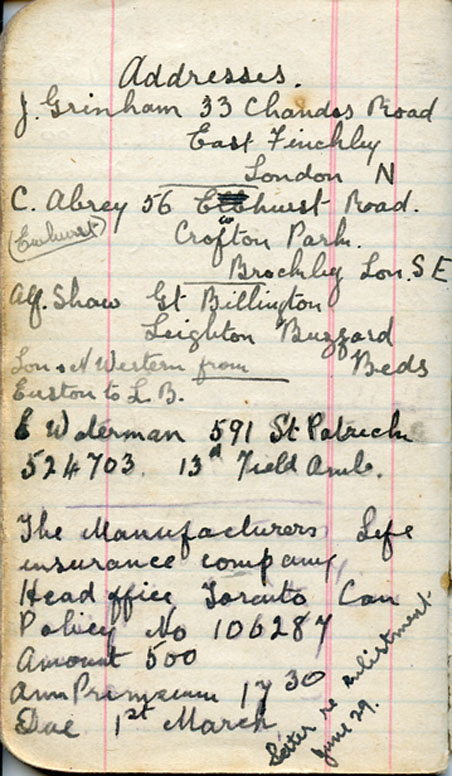 Addresses.
J. Grinham 33 Chandos Road
East Finchley
London N
C. Abrey 56 Ewhurst Road.
(Ewhurst)
Crofton Park.
Brockley Lon. S E
Alf. Shaw Gt Billington
Leighton Buzzard
Beds
Lon. N Western from
Euston to L. B.
E Waterman 591 St Patrick
524703. 13th Field Amb.
The Manufacturers Life
insurance company,
Head office Toronto Can
Policy No 106287
Amount 500
Ann Premium 17 30
Due 1st March
Letter re enlistment
June 29.